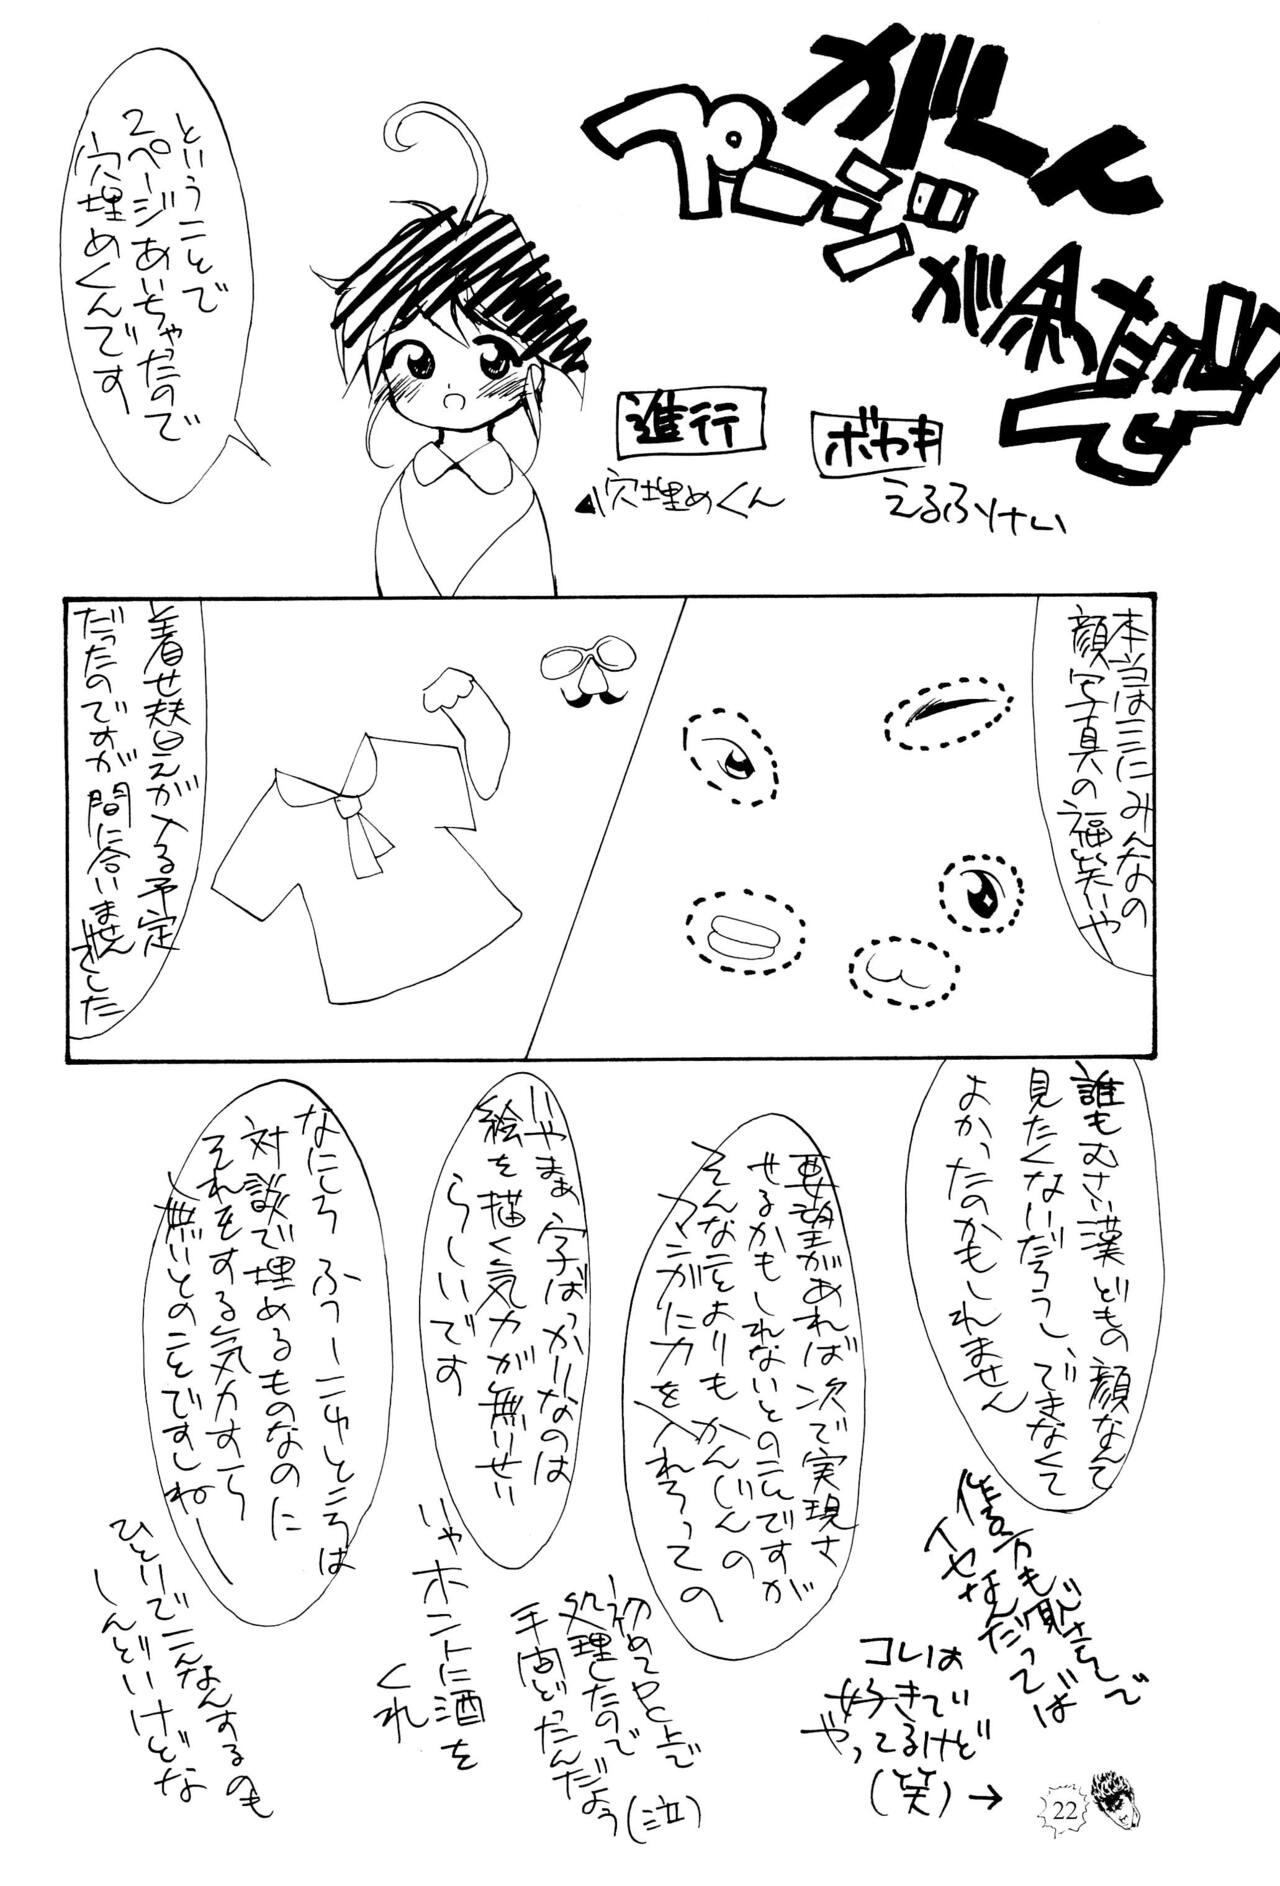 がーん
ページが余ったぜ!!
進行
穴埋めくん
ボヤキ
えるふりけい
ということで
2ページあいちゃったので
穴埋めくんです
本当はここにみんなの
顔写真の福笑いや
着せ替えが入る予定
だったのですが間に合いませんでした
誰もむさい漢どもの顔なんて
見たくないだろうし、でまなくて
よかったのかもしれません
作る方も恥さらしで
イヤなんだってば
コレは
好きでい
やってるけど
(笑)→
要望があれば次で実現さ
せるかもしれないとのことですが
そんなことよりもかんじんの
マンガに力を入れろっての
初めてヤと上で
処理したので
手間どったんだよう
(泣)
いやまぁ、字ばっかりなのは
絵を描く気力が無いせい
らしいです
いやホントに酒を
くれ
なにしろふつーこゆところは
対談で埋めるものなのに
それをする気力すら
無いとのことですしねー
ひとりでこんなんするのも
しんどいけどな
22